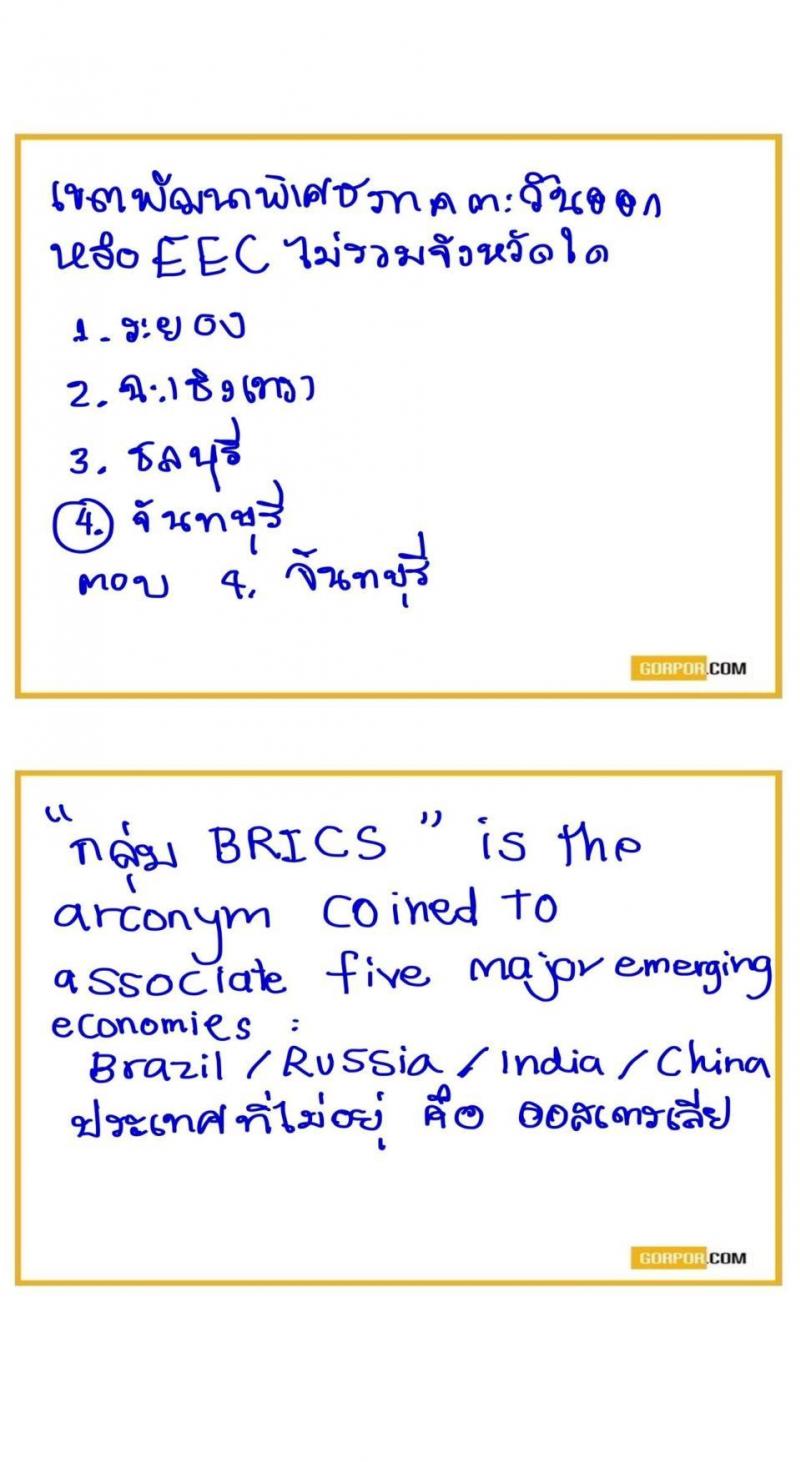 เขตพัฒนาพิเศษภาคตะวันออก
หรือ EEC ไม่รวมจังหวัดใด
1. ระยอง
2. ฉะเชิงเทรา
3. ชลบุรี
4. จันทบุรี
ตอบ 4. จันทบุรี
GORPOR.COM
"กลุ่ม BRICS" is the
arconym coined to
associate five major emerging
economies :
Brazil / Russia / India / China
ประเทศที่ไม่อยู่ คือ ออสเตรเลีย
GORPOR.COM